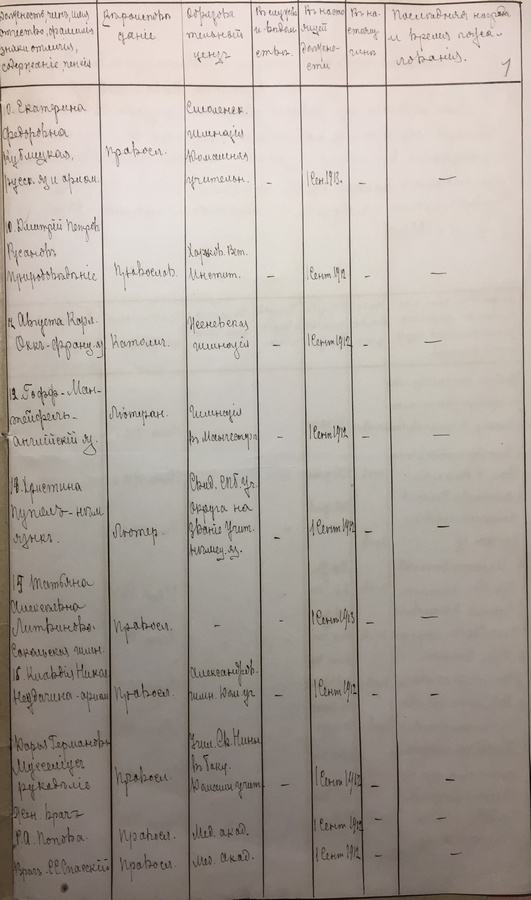 Должность, чинъ, имя
отчество, фамилія,
знаки отличія,
содержаніе пенсія
Вѣроисповѣ
даніе
Образова
тельный
цензъ
Въ службѣ
и вѣдом
ствѣ
Въ насто
ящей
должно-
сти
Въ на-
стоящ.
чинѣ
Послѣдняя награда
и время пожа-
лованія.
10. Екатерина
Федоровна
Кублицкая,
русск. яз и ариѳм.
Правосл.
Смоленск.
гимназія
Домашняя
учительн.
–
1 Сен. 1913.
–
–
10. Дмитрій Петров.
Русановъ
Природовѣдѣніе
Православ.
Харьков. Вет.
Институт.
–
1 Сент 1912
–
–
Августа Карл.
Оккъ-франц. яз
Католич.
Женевская
гимназія
–
1 Сент 1912
–
–
12. Гофф-Ман-
тейфель-
англійскій яз.
Лютеран.
Гимназія
въ Манчестерѣ
–
1 Сент 1912
–
–
Христина
нѣм.
языкъ.
Лютер.
Свид. СПб. Уч.
Округа на
Званіе Учит.
нѣмец. яз.
–
1 Сент 1912
–
–
15 Татьяна
Алексѣевна
Литвинова-
Сокольская гимн.
Правосл.
–
–
1 Сент 1913
–
–
16. Клавдія Никол.
Правосл.
Александров.
гимн. Дом уч
–
1 Сент 1912
–
–
Дарья Германовн.
рукодѣліе
Правосл.
Учил. Св. Нины
въ Баку.
Домашн учит
–
1 Сент 1912
–
–
Жен. врачъ
Р. А. Попова.
Правосл.
Мед. акад.
–
1 Сент 1912
–
–
Врачъ С. С. Спасскій
Правосл.
Мед. Акад.
–
1 Сент 1912
–
–